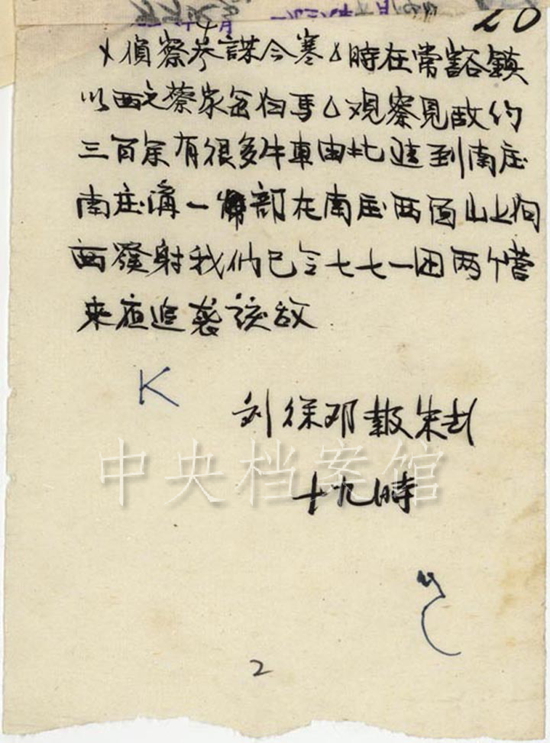 20
偵察參謀今寒 時在常峪鎮
以西之蔡家 向馬 观察見敌約
三百余有很多牛車由北進到南庄
南庄溝一部在南庄西面山上向
西發射我們已令七七一团两个营
来夜追袭該敌
K
刘徐邓報朱彭
十九時
中央档案馆
2